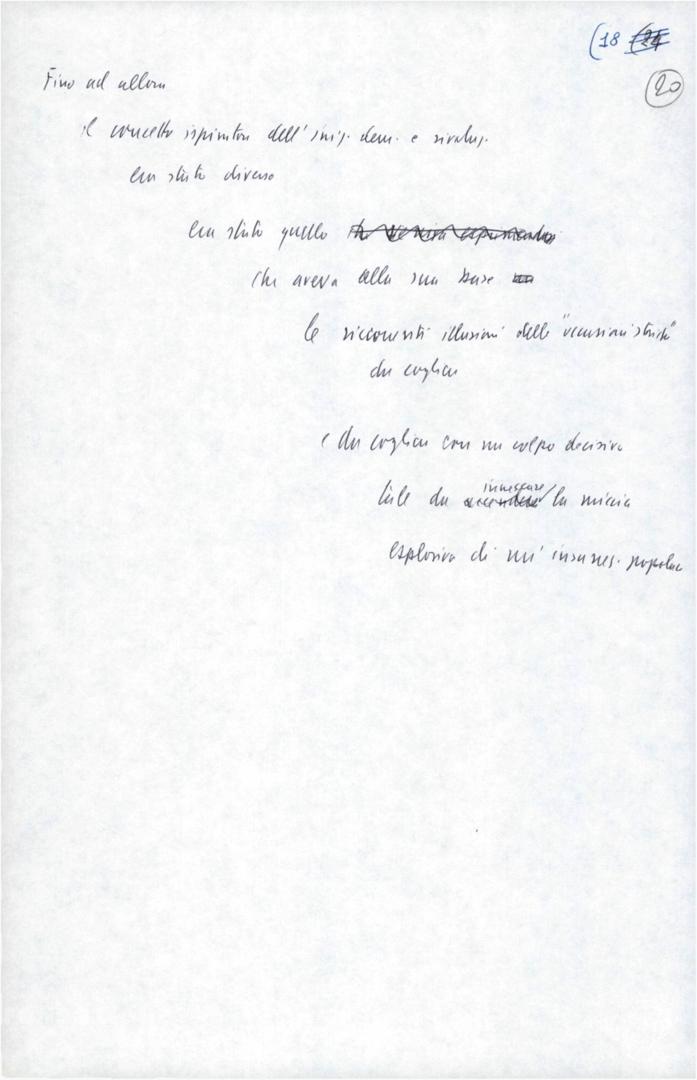 (18
20
Fino ad allora
il concetto ispiratore dell'iniz. dem. e rivoluz.
era stato diverso
era stato quello
che aveva alla sua base
le ricorrenti illusioni delle "occasioni storiche"
da cogliere
e da cogliere con un colpo decisivo
tale da innescare la miccia
esplosiva di un'insurrez. popolare